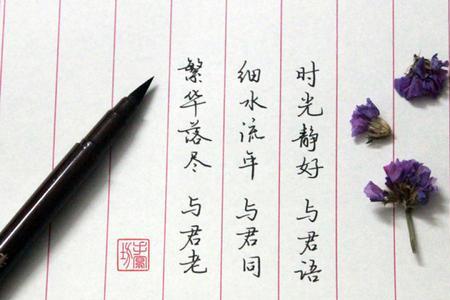 时光静好 与君语
细水流年 与君同
繁华落尽 与君老